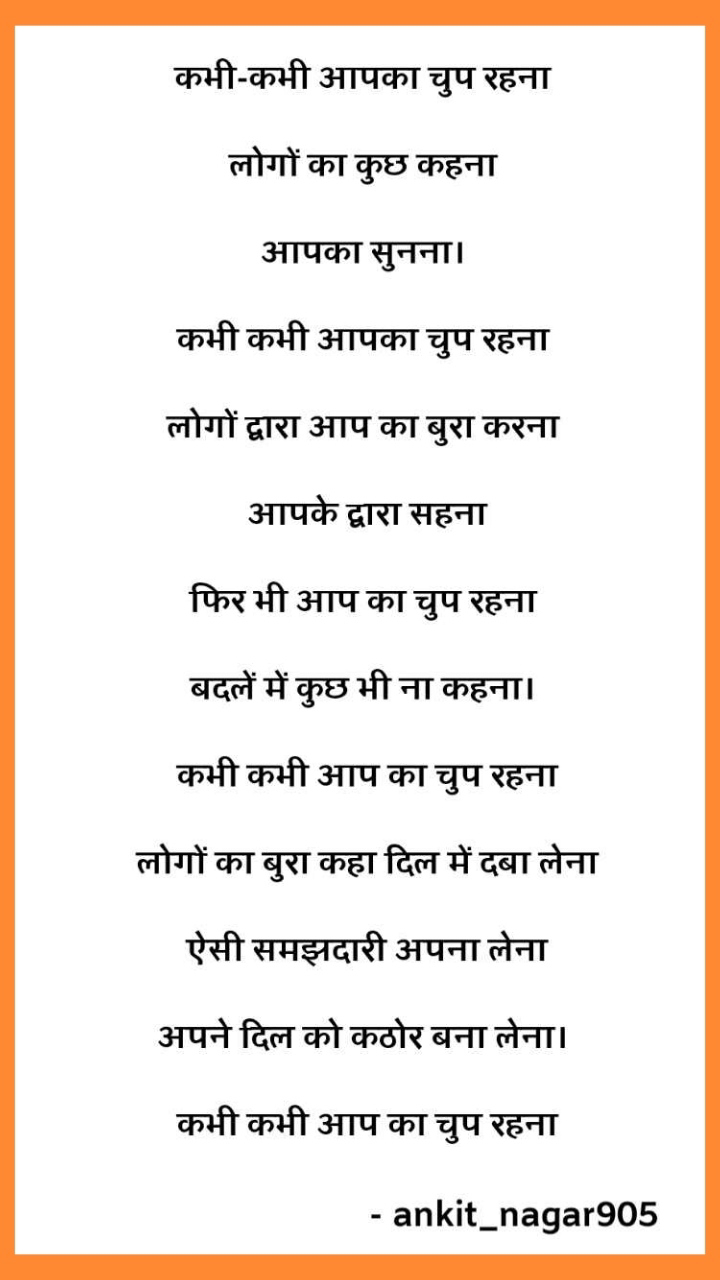 कभी-कभी आपका चुप रहना
लोगों का कुछ कहना
आपका सुनना।
कभी कभी आपका चुप रहना
लोगों द्वारा आप का बुरा करना
आपके द्वारा सहना
फिर भी आप का चुप रहना
बदलें में कुछ भी ना कहना।
कभी कभी आप का चुप रहना
लोगों का बुरा कहा दिल में दबा लेना
ऐसी समझदारी अपना लेना
अपने दिल को कठोर बना लेना।
कभी कभी आप का चुप रहना
- ankit_nagar905